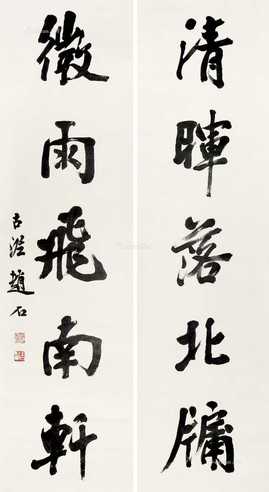 清暉落北牖
微雨飛南軒
古滃趙石